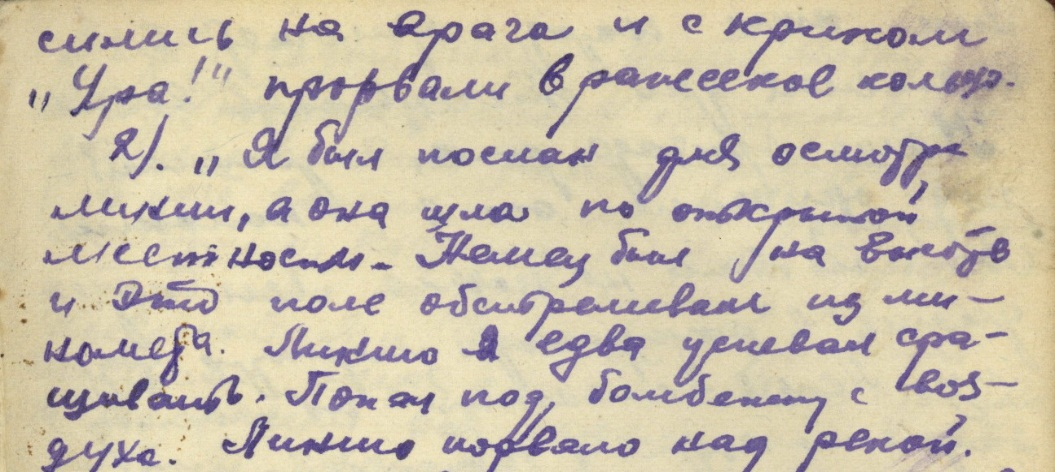 сились на врага и с криком
„Ура!" прорвали вражеское кольцо.
2). „Я был послан для осмотра
линии, а она шла по открытой
местности. Немец был на высоте
и это поле обстреливал из ми-
номета. Линию я едва успевал сра-
щивать. Попал под бомбежку с воз-
духа. Линию порвало над рекой.